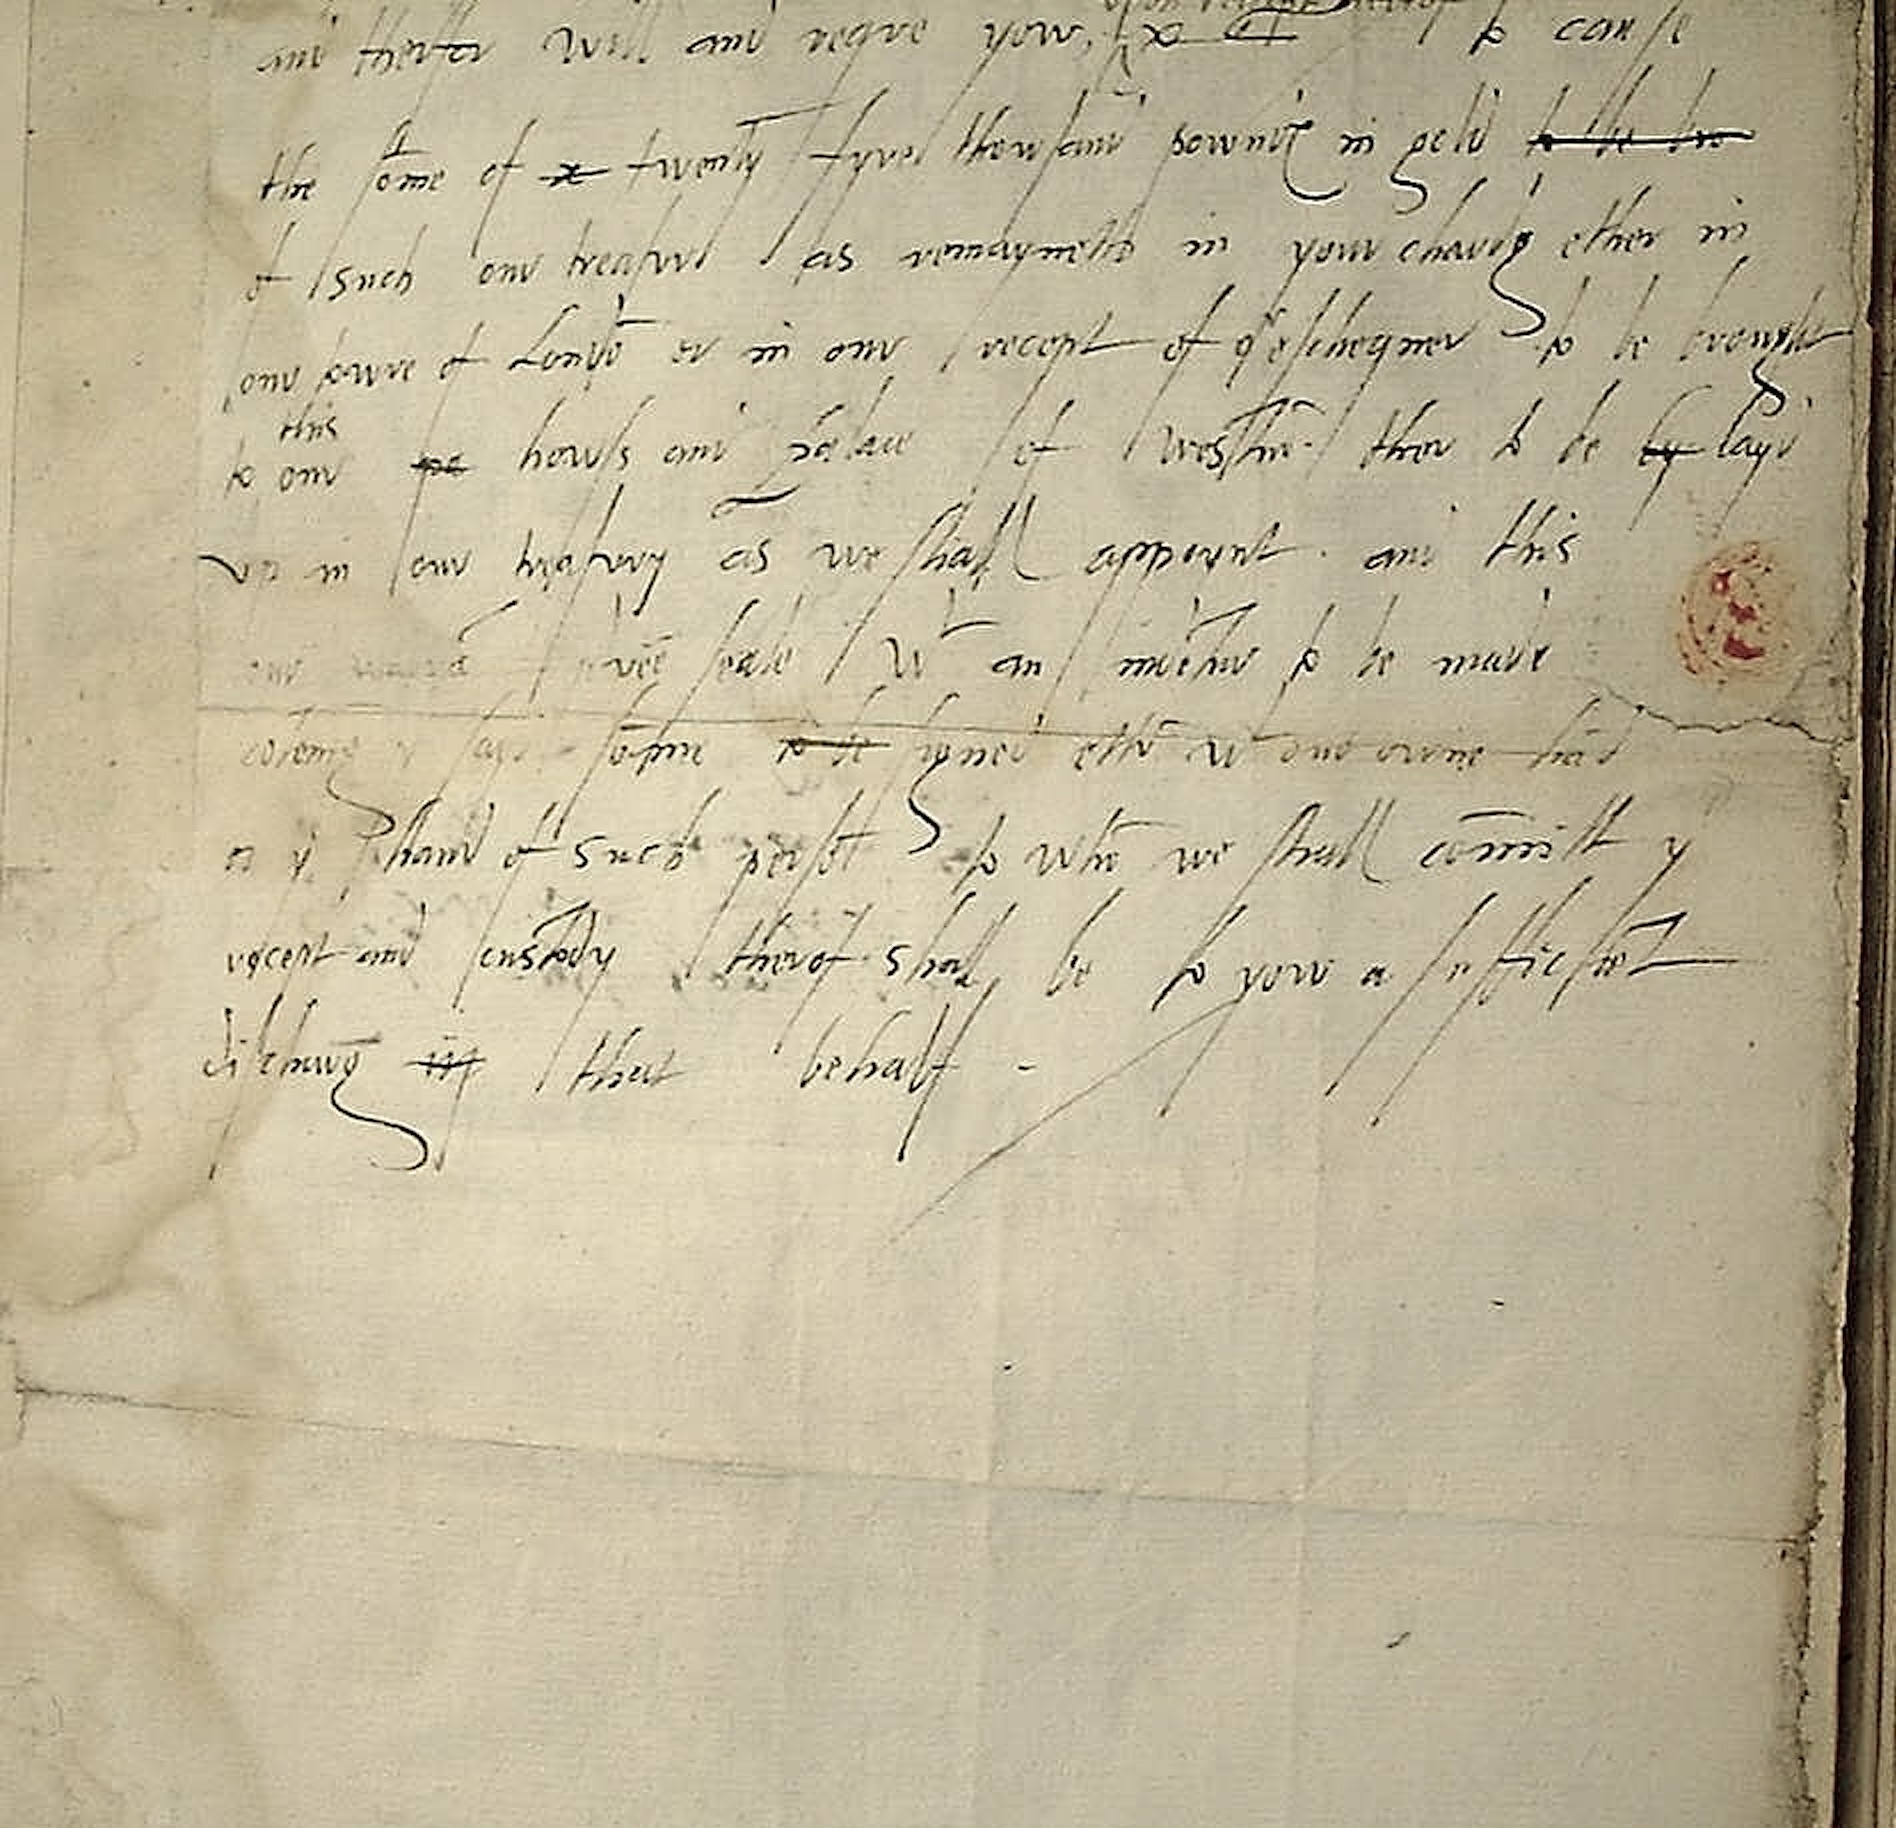 upon
and therfor will and reqre yow, to cause
the some of x twenty fyve thowsand pownds in gold to be bro
of such our treasure as remayneth in your charg ether in
our towre of Londō or in our recept of escheqner to be brought
this
to our howss and palace of westm̄. ther to be ly layd
vp in our treasury as we shall appoynt. and this
our sealе wt an to be made
say some to be signed ether wt our owne hād
or yͤ hand of such persō to whō we shall comitt yͤ
recept and custody therof shall be to yow a sufficiēt
discharg in that behalf -